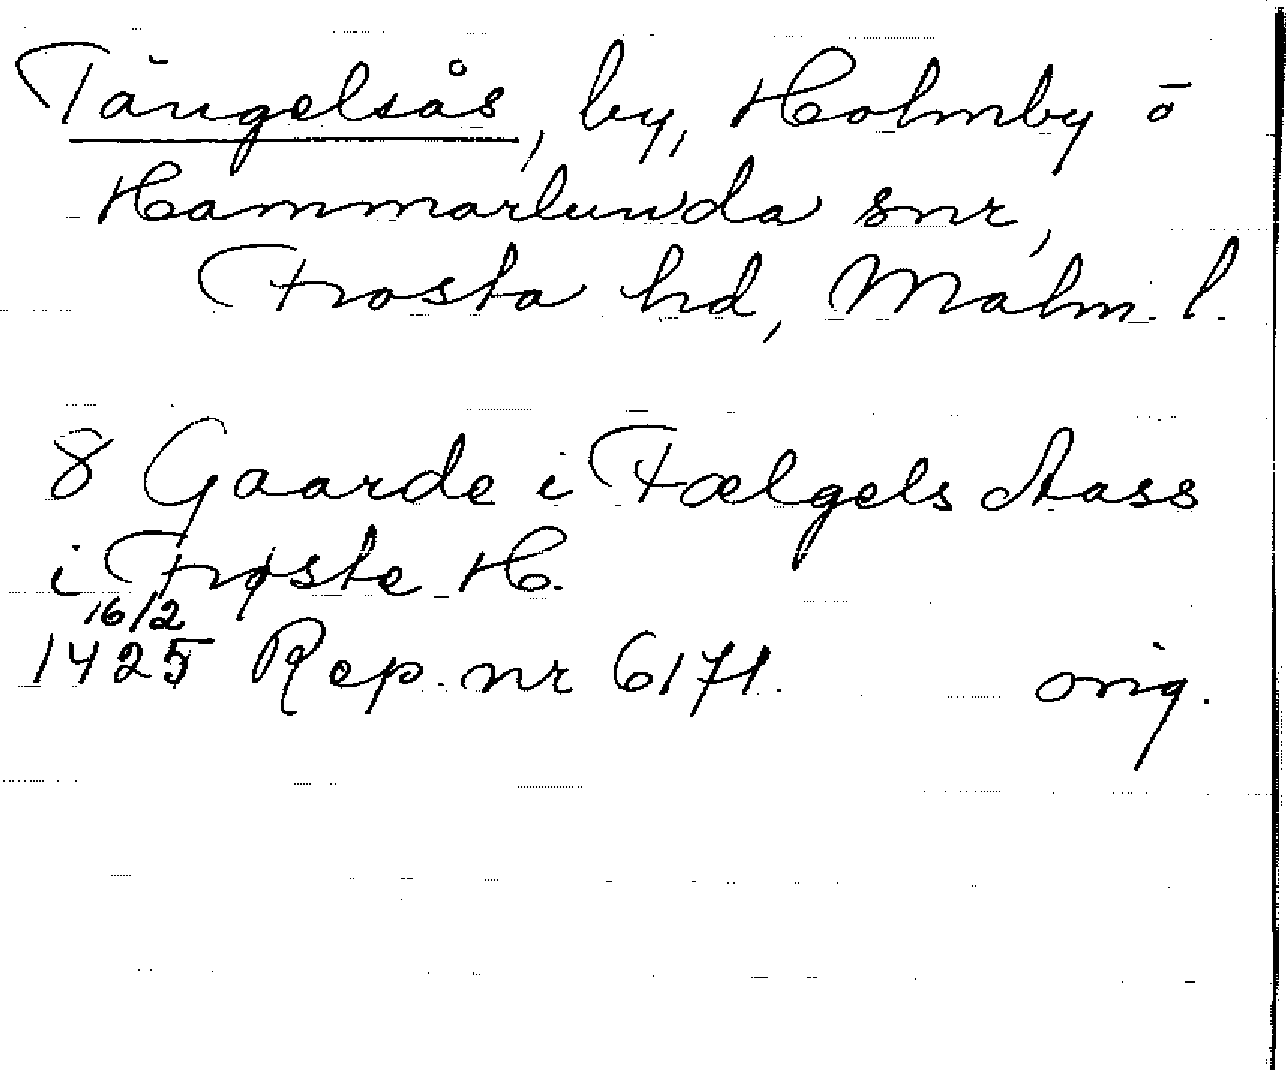 Tängelsås, by, Holmby o
Hammarlunda snr,
Frosta hd, Malm. l.
8 Gaarde i Fælgels Aass
i Frøste H.
16/2
1425 Rep. nr 6171. orig.